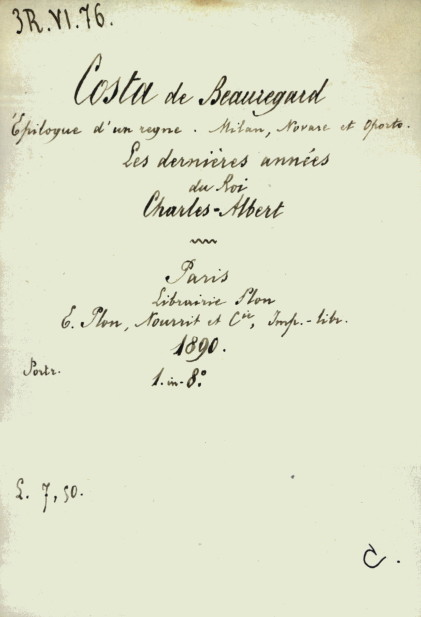 3R.VI.76.
Costa de Beauregard
Épilogue d'un regne. Milan, Novare et Oporto.
Les dernières années
du Roi
Charles-Albert
Paris
Librairie Plon
E. Plon, Nourrit et Cie, Imp.-libr.
1890.
Portr.
1.in-8°
L. 7,50.
C.